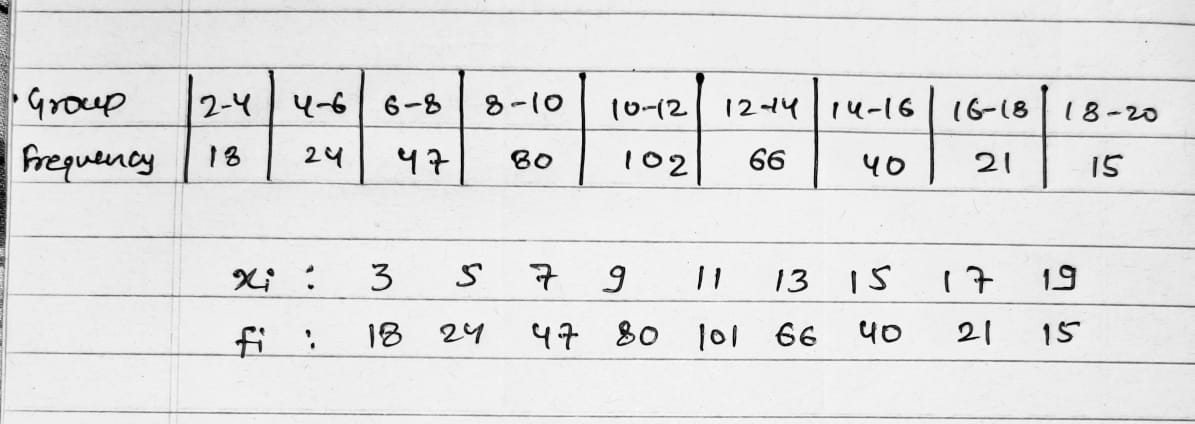 Group 2-4 4-6 6-8 8-10 10-12 12-14 14-16 16-18 18-20
Frequency 18 24 47 80 102 66 40 21 15
xi : 3 5 7 9 11 13 15 17 19
fi : 18 24 47 80 101 66 40 21 15